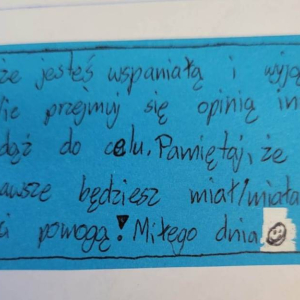 że jesteś wspaniałą i wyją
ie przejmuj się opinią in
dąż do celu. Pamiętaj, że
awsze będziesz miał/miała
i pomogą! Miłego dnia ☺